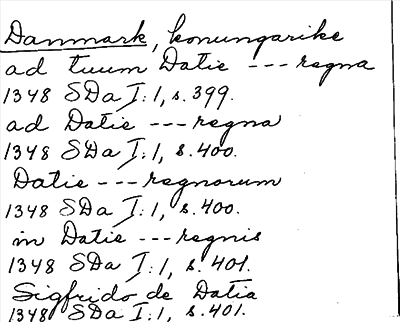 Danmark, konungarike
ad tuum Datie --- regna
1348 SDa I:1, s. 399.
ad Datie --- regna
1348 SDa I:1, s. 400.
Datie --- regnorum
1348 SDa I:1, s. 400.
in Datie --- regnis
1348 SDa I:1, s. 401.
Sigfrido de Datia
1348 SDa I:1, s. 401.